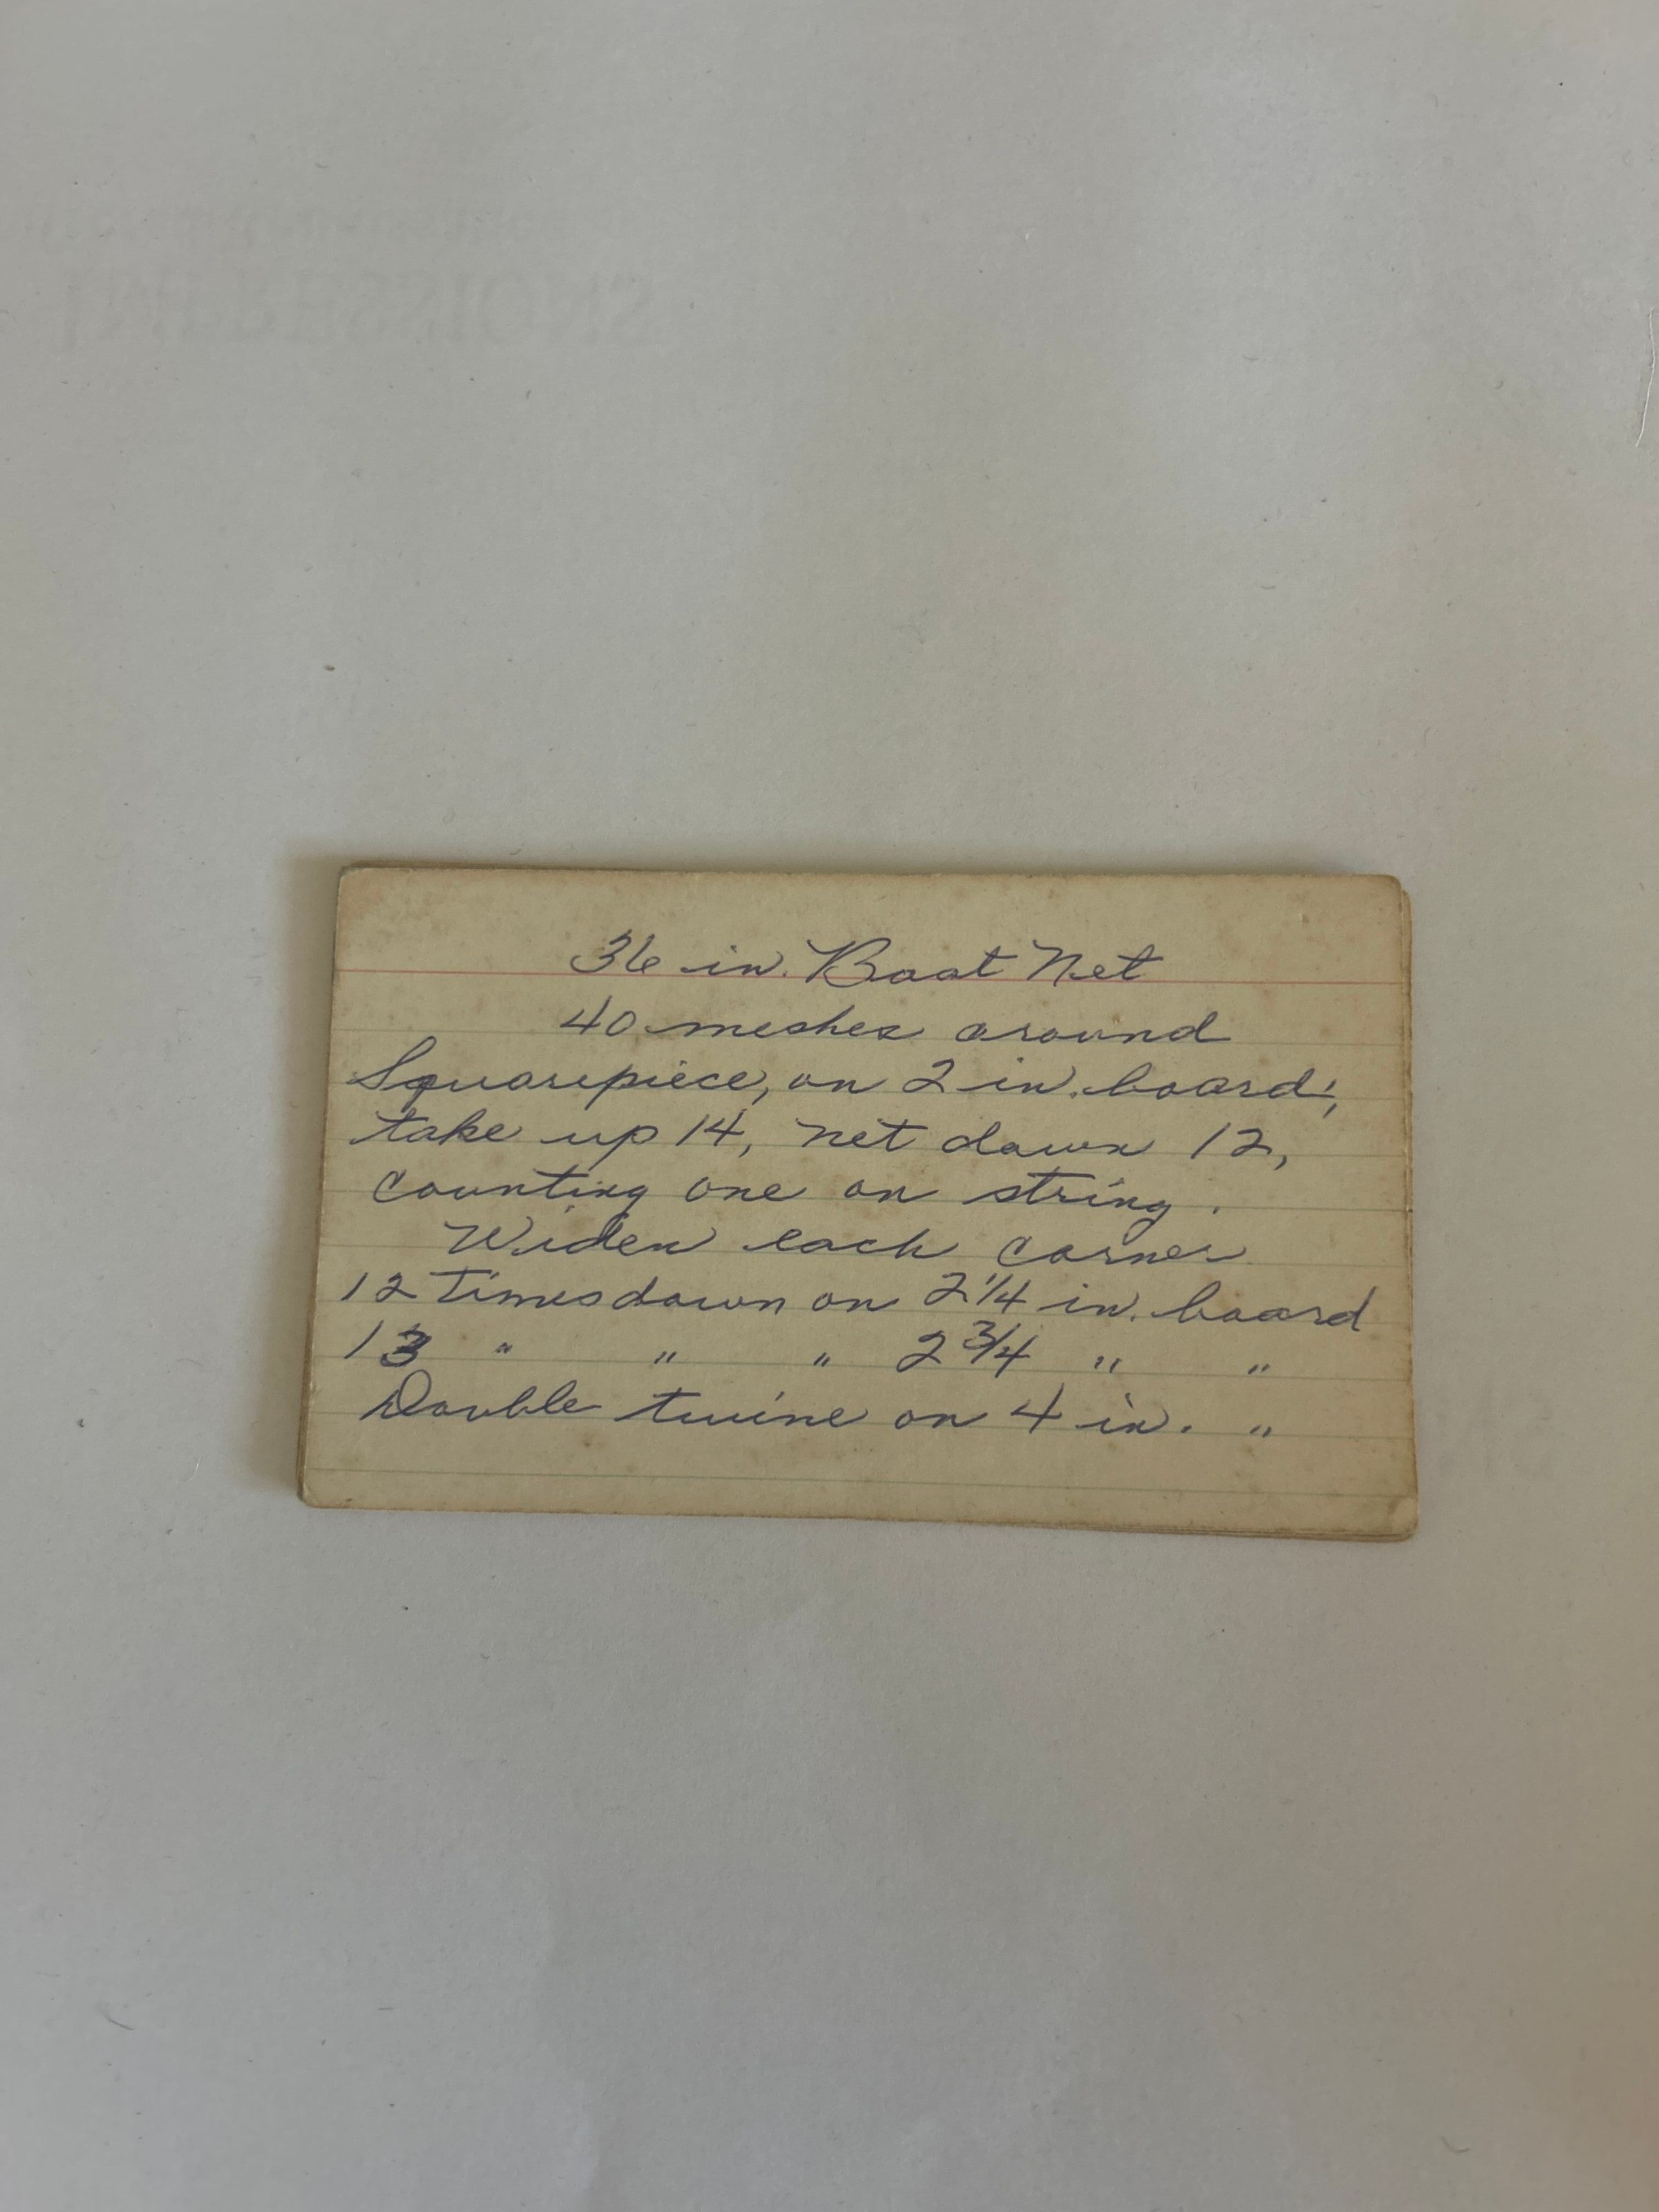 IMPRESSIONS
36 in. Boat Net
40 meshes around
Squarepiece, on 2 in. board;
take up 14, net down 12,
counting one on string.
Widen each corner
12 Times down on 2 1/4 in. board
13 " " " 2 3/4 " "
Double twine on 4 in. "